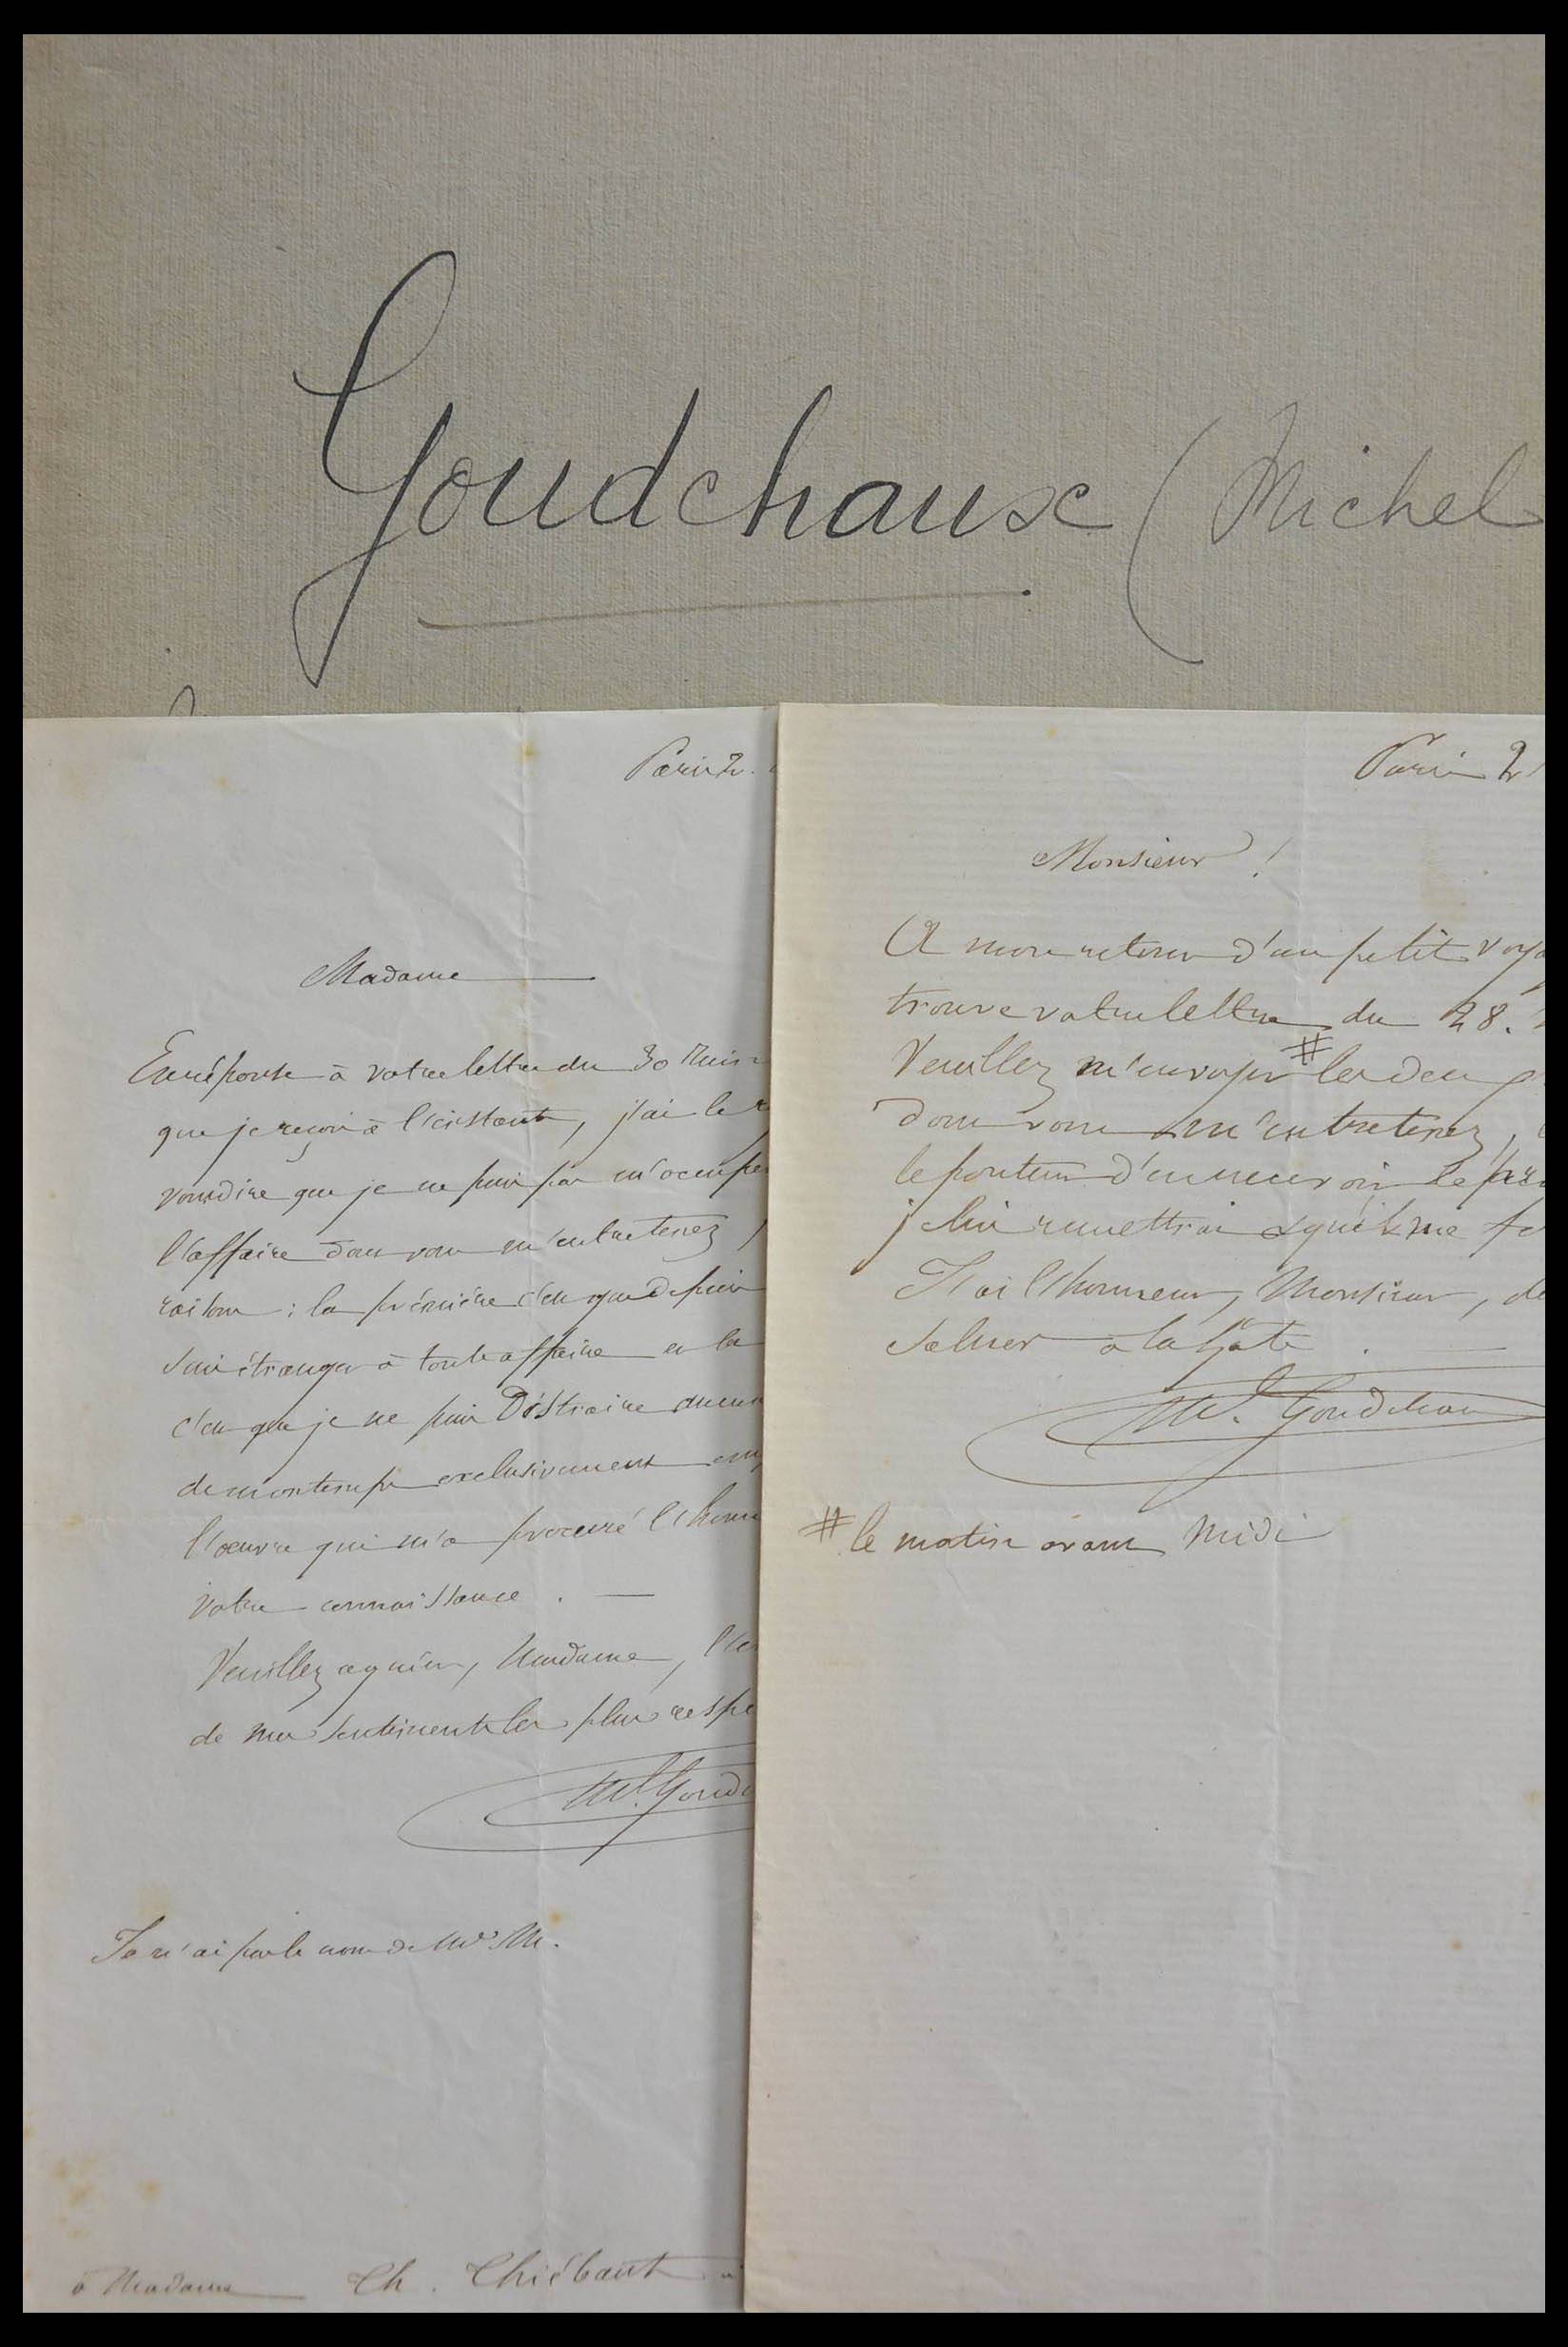 Goudchaux (Michel
Paris 2.
Madame
En réponse à votre lettre du 30
que je reçois à l'instant, j'ai le
vous dire que je ne puis pas m'occuper
l'affaire dont vous m'entretenez,
raisons : la première c'est que depuis
suis étranger à toute affaire et la
c'est que je ne puis distraire aucun
de mon temps exclusivement
l'œuvre qui m'a procuré l'honn
votre connaissance . —
Veuillez agréer, Madame,
de mes sentiments les plus respe
Md. Goud
Je n'ai pas le nom de Mr. M.
à Madame Ch. Thiébaut
Paris 2
Monsieur !
A mon retour d'un petit voya
trouve votre lettre du 28.
Veuillez m'envoyer # les deux
dont vous m'entretenez,
le porteur d'en recevoir le
je lui remettrai
J'ai l'honneur, Monsieur, de
saluer à la hâte .
Md. Goudchau
# le matin avant midi